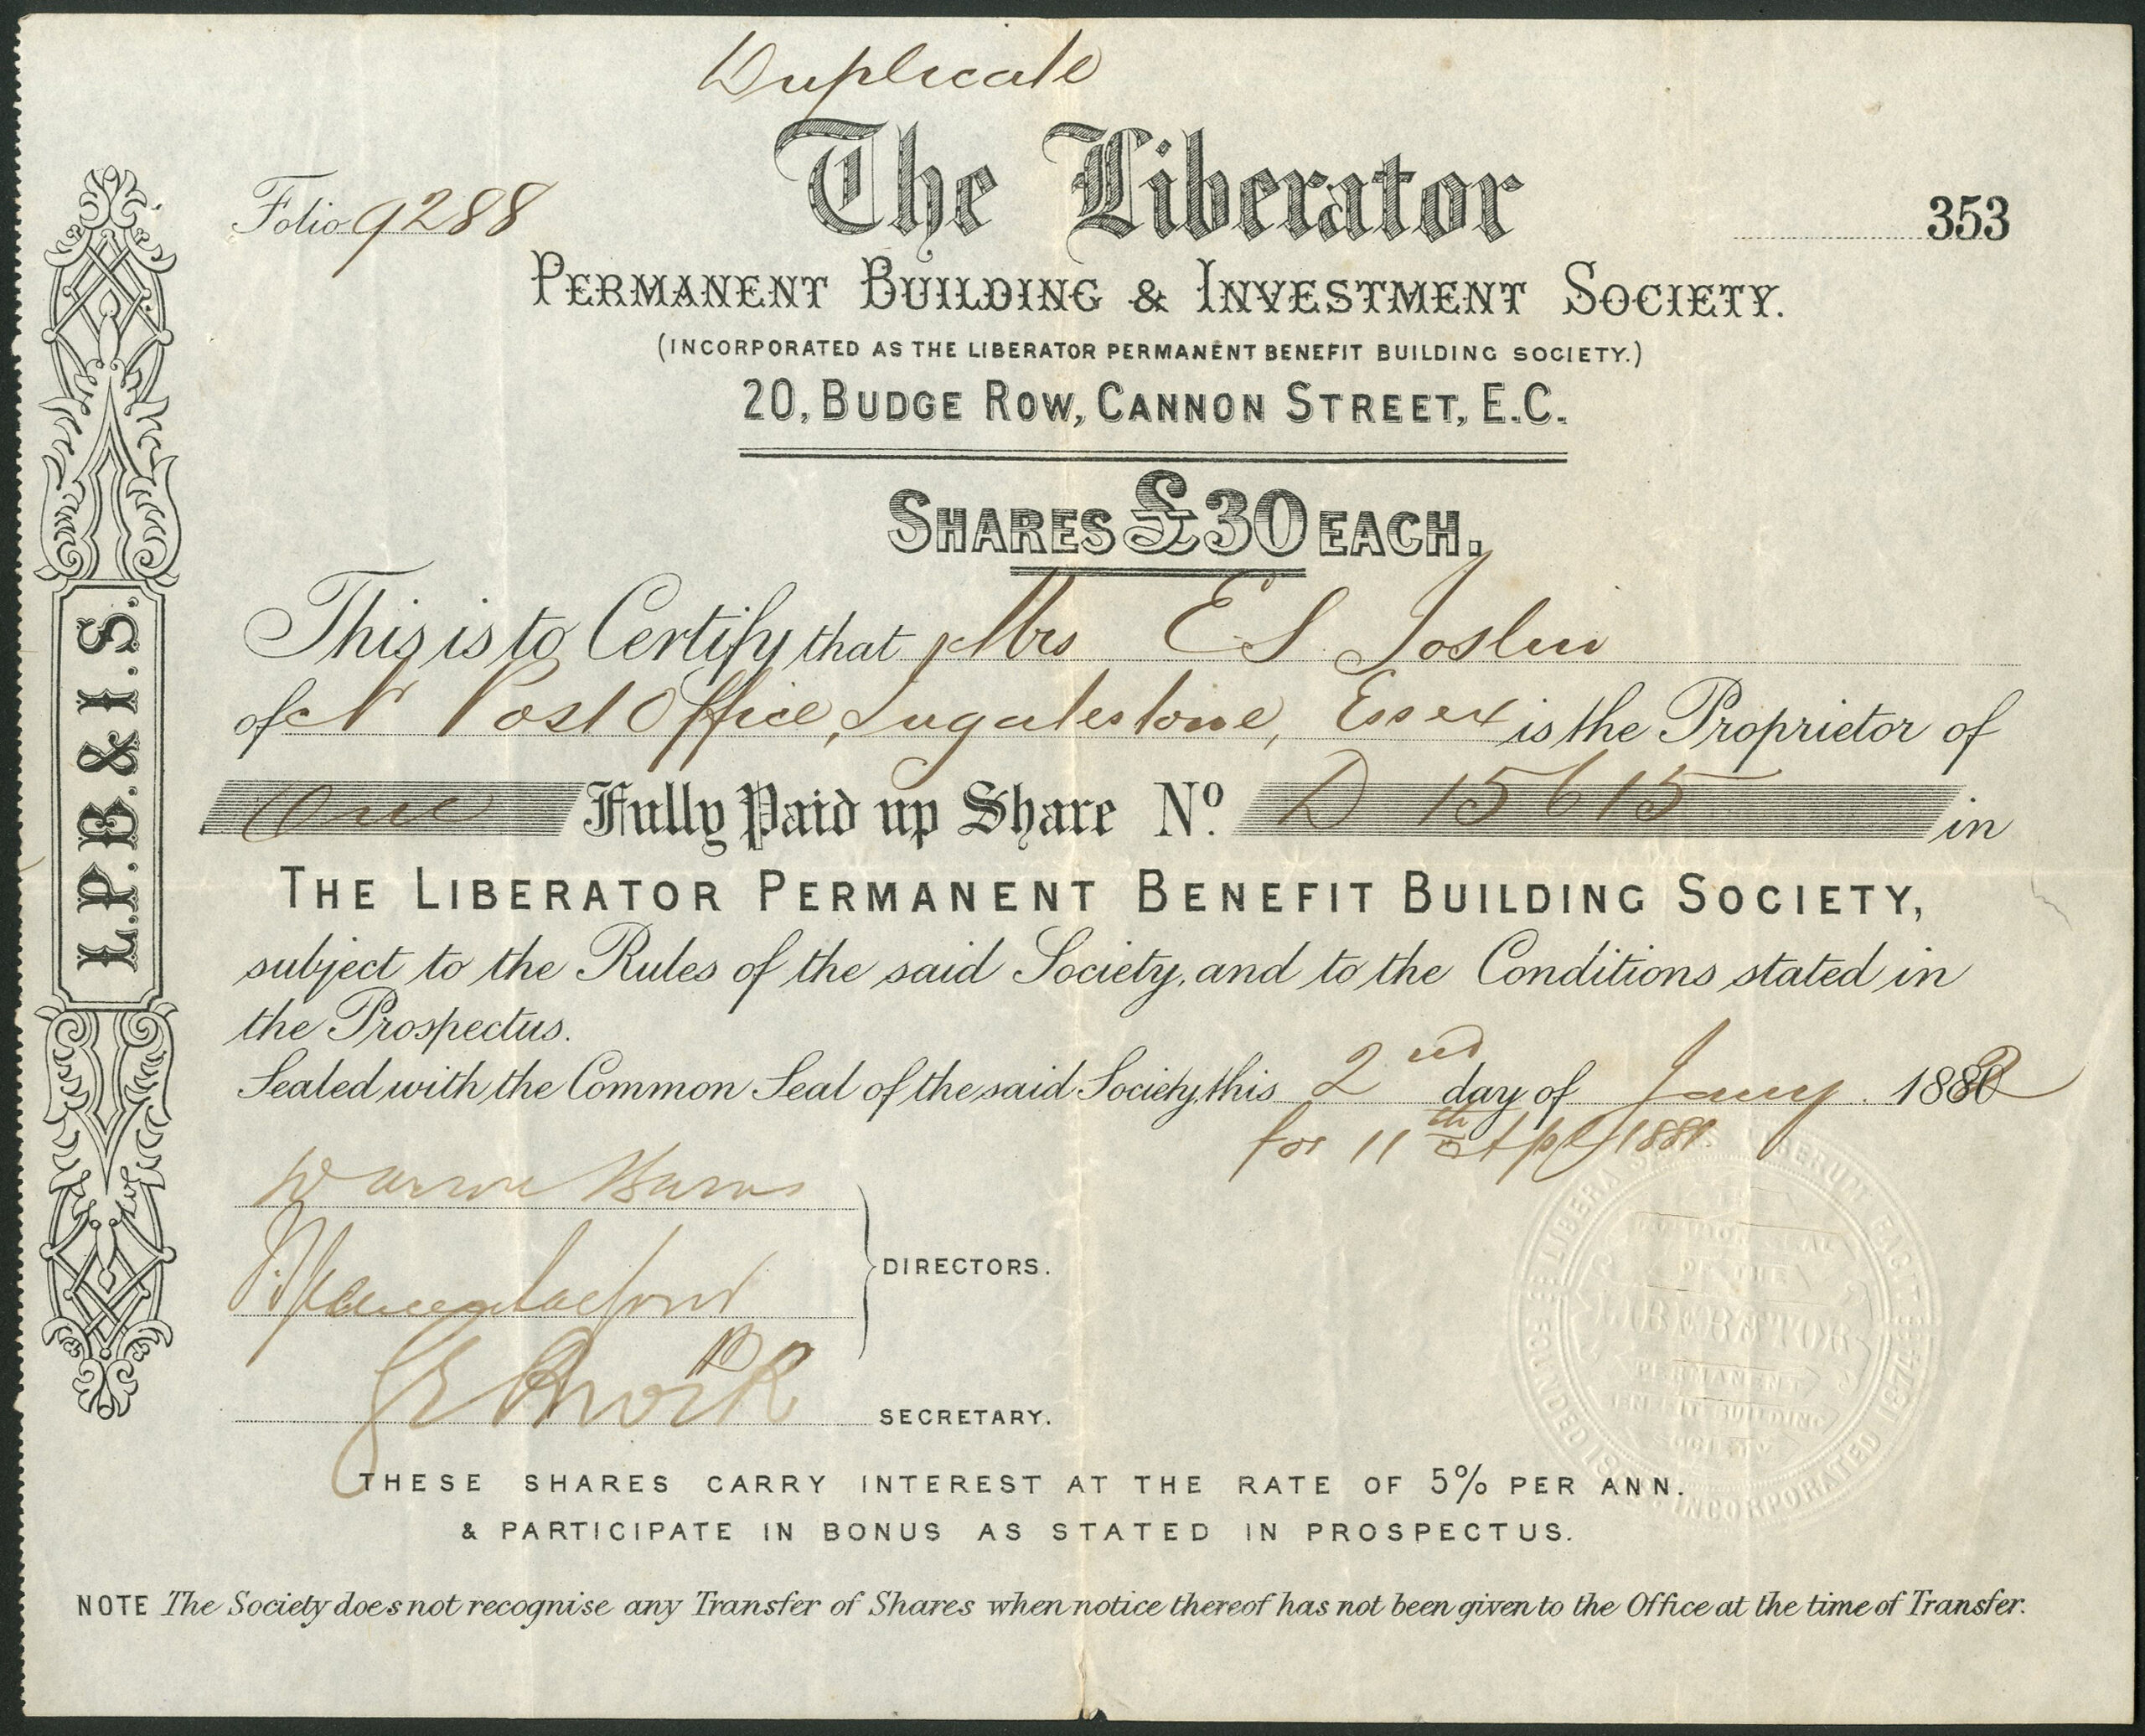 Duplicate
The Liberator
Folio 9288
353
PERMANENT BUILDING & INVESTMENT SOCIETY.
(INCORPORATED AS THE LIBERATOR PERMANENT BENEFIT BUILDING SOCIETY.)
20, BUDGE ROW, CANNON STREET, E.C.
SHARES £30 EACH.
This is to Certify that Mrs E S Joslin
of Nr Post Office, Ingatestone, Essex is the Proprietor of
One Fully Paid up Share No. D 15615 in
THE LIBERATOR PERMANENT BENEFIT BUILDING SOCIETY,
subject to the Rules of the said Society, and to the Conditions stated in
the Prospectus.
Sealed with the Common Seal of the said Society, this 2nd day of Jany. 1882
for 11th Apl 1881.
DIRECTORS.
SECRETARY.
THESE SHARES CARRY INTEREST AT THE RATE OF 5% PER ANN.
& PARTICIPATE IN BONUS AS STATED IN PROSPECTUS.
NOTE The Society does not recognise any Transfer of Shares when notice thereof has not been given to the Office at the time of Transfer.
L.P.B. & I.S.
COMMON SEAL
OF THE
LIBERATOR
PERMANENT
BENEFIT BUILDING
SOCIETY
INCORPORATED 1874